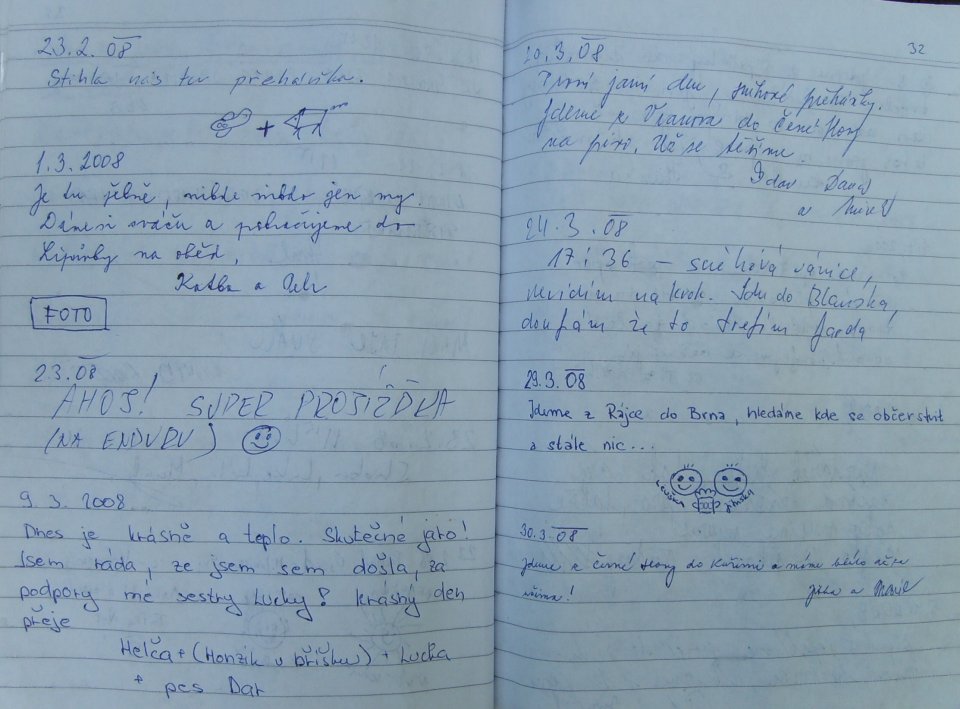 23.2.08
Stihla nás tu přeháňka.
+
1.3.2008
Je tu , nikde nikdo jen my.
Dáme si sváču a pokračujeme do
Lipůvky na oběd,
Katka a Petr
FOTO
23.08
AHOJ! SUPER PROJÍŽĎKA
(NA ENDURU)
9.3.2008
Dnes je krásně a teplo. Skutečné jaro!
Jsem ráda, že jsem sem došla, za
podpory mé sestry Lucky! Krásný den
přeje
Helča + (Honzík v bříšku) + Lucka
+ pes Dar
32
20.3.08
První jarní den, sněhové přeháňky.
Jdeme z Vranova do Černé Hory
na pivo. Už se těšíme.
a
24.3.08
17:36 – sněhová vánice,
nevidím na krok. Jdu do Blanska,
doufám že to trefím Jarda
29.3.08
Jdeme z Rájce do Brna, hledáme kde se občerstvit
a stále nic...
30.3.08
Jdeme z Černé Hory do Kuřimi a máme